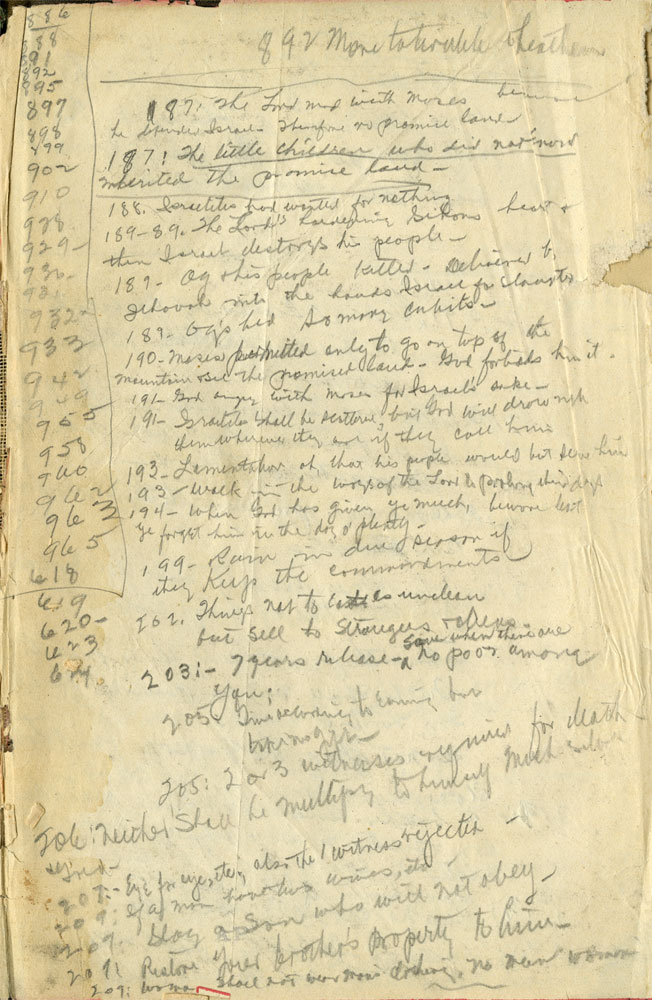 886
888
891
892
895
897
898
899
902
910
928
929-
930-
931
932-
933
942
949
955
958
960
962
963
965
618
619
620-
623
624
892 More tolerable
187: The Lord mad with Moses because
he defended Israel. Therefore no promise land
187: The little children who did not know
inherited the promise land-
188. Israelites had wanted for nothing
189-89. The Lord's hardening Sihons heart &
then Israel destroys his people-
189- Og & his people killed. Delivered by
Jehovah into the hands Israel for slaughter
189- Og's bed so many cubits-
190- Moses permitted only to go on top of the
mountain & see the promised land. God forbids him it.
191- God angry with Moses for Israel's sake-
191- Israelites shall be scattered, but God will draw nigh
them wherever they are if they call him
193- Lamentation oh that his people would but serve him
193- Walk in the ways of the Lord to prolong their days
194- When God has given ye much, beware lest
ye forget him in the day of plenty-
199- Rain in due season if
they keep the commandments
202. Things not to eat as unclean
but sell to strangers
203:- 7 years release- Save when there are no poor among
you:
205. 
205: 2 or 3 witnesses required for death-
206: Neither shall he multiply to himself much silver
& gold-
207:- Eye for eye, etc, also the 1 witness rejected-
209: If a man have two wives, etc-
209: Slay a son who will not obey-
209: Restore your brother's property to him-
209: Woman shall not wear mans clothing, no man womans